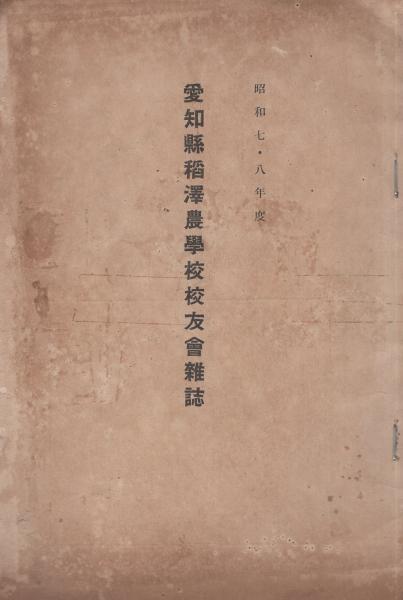 昭和七・八年度
愛知縣稻澤農學校校友會雜誌